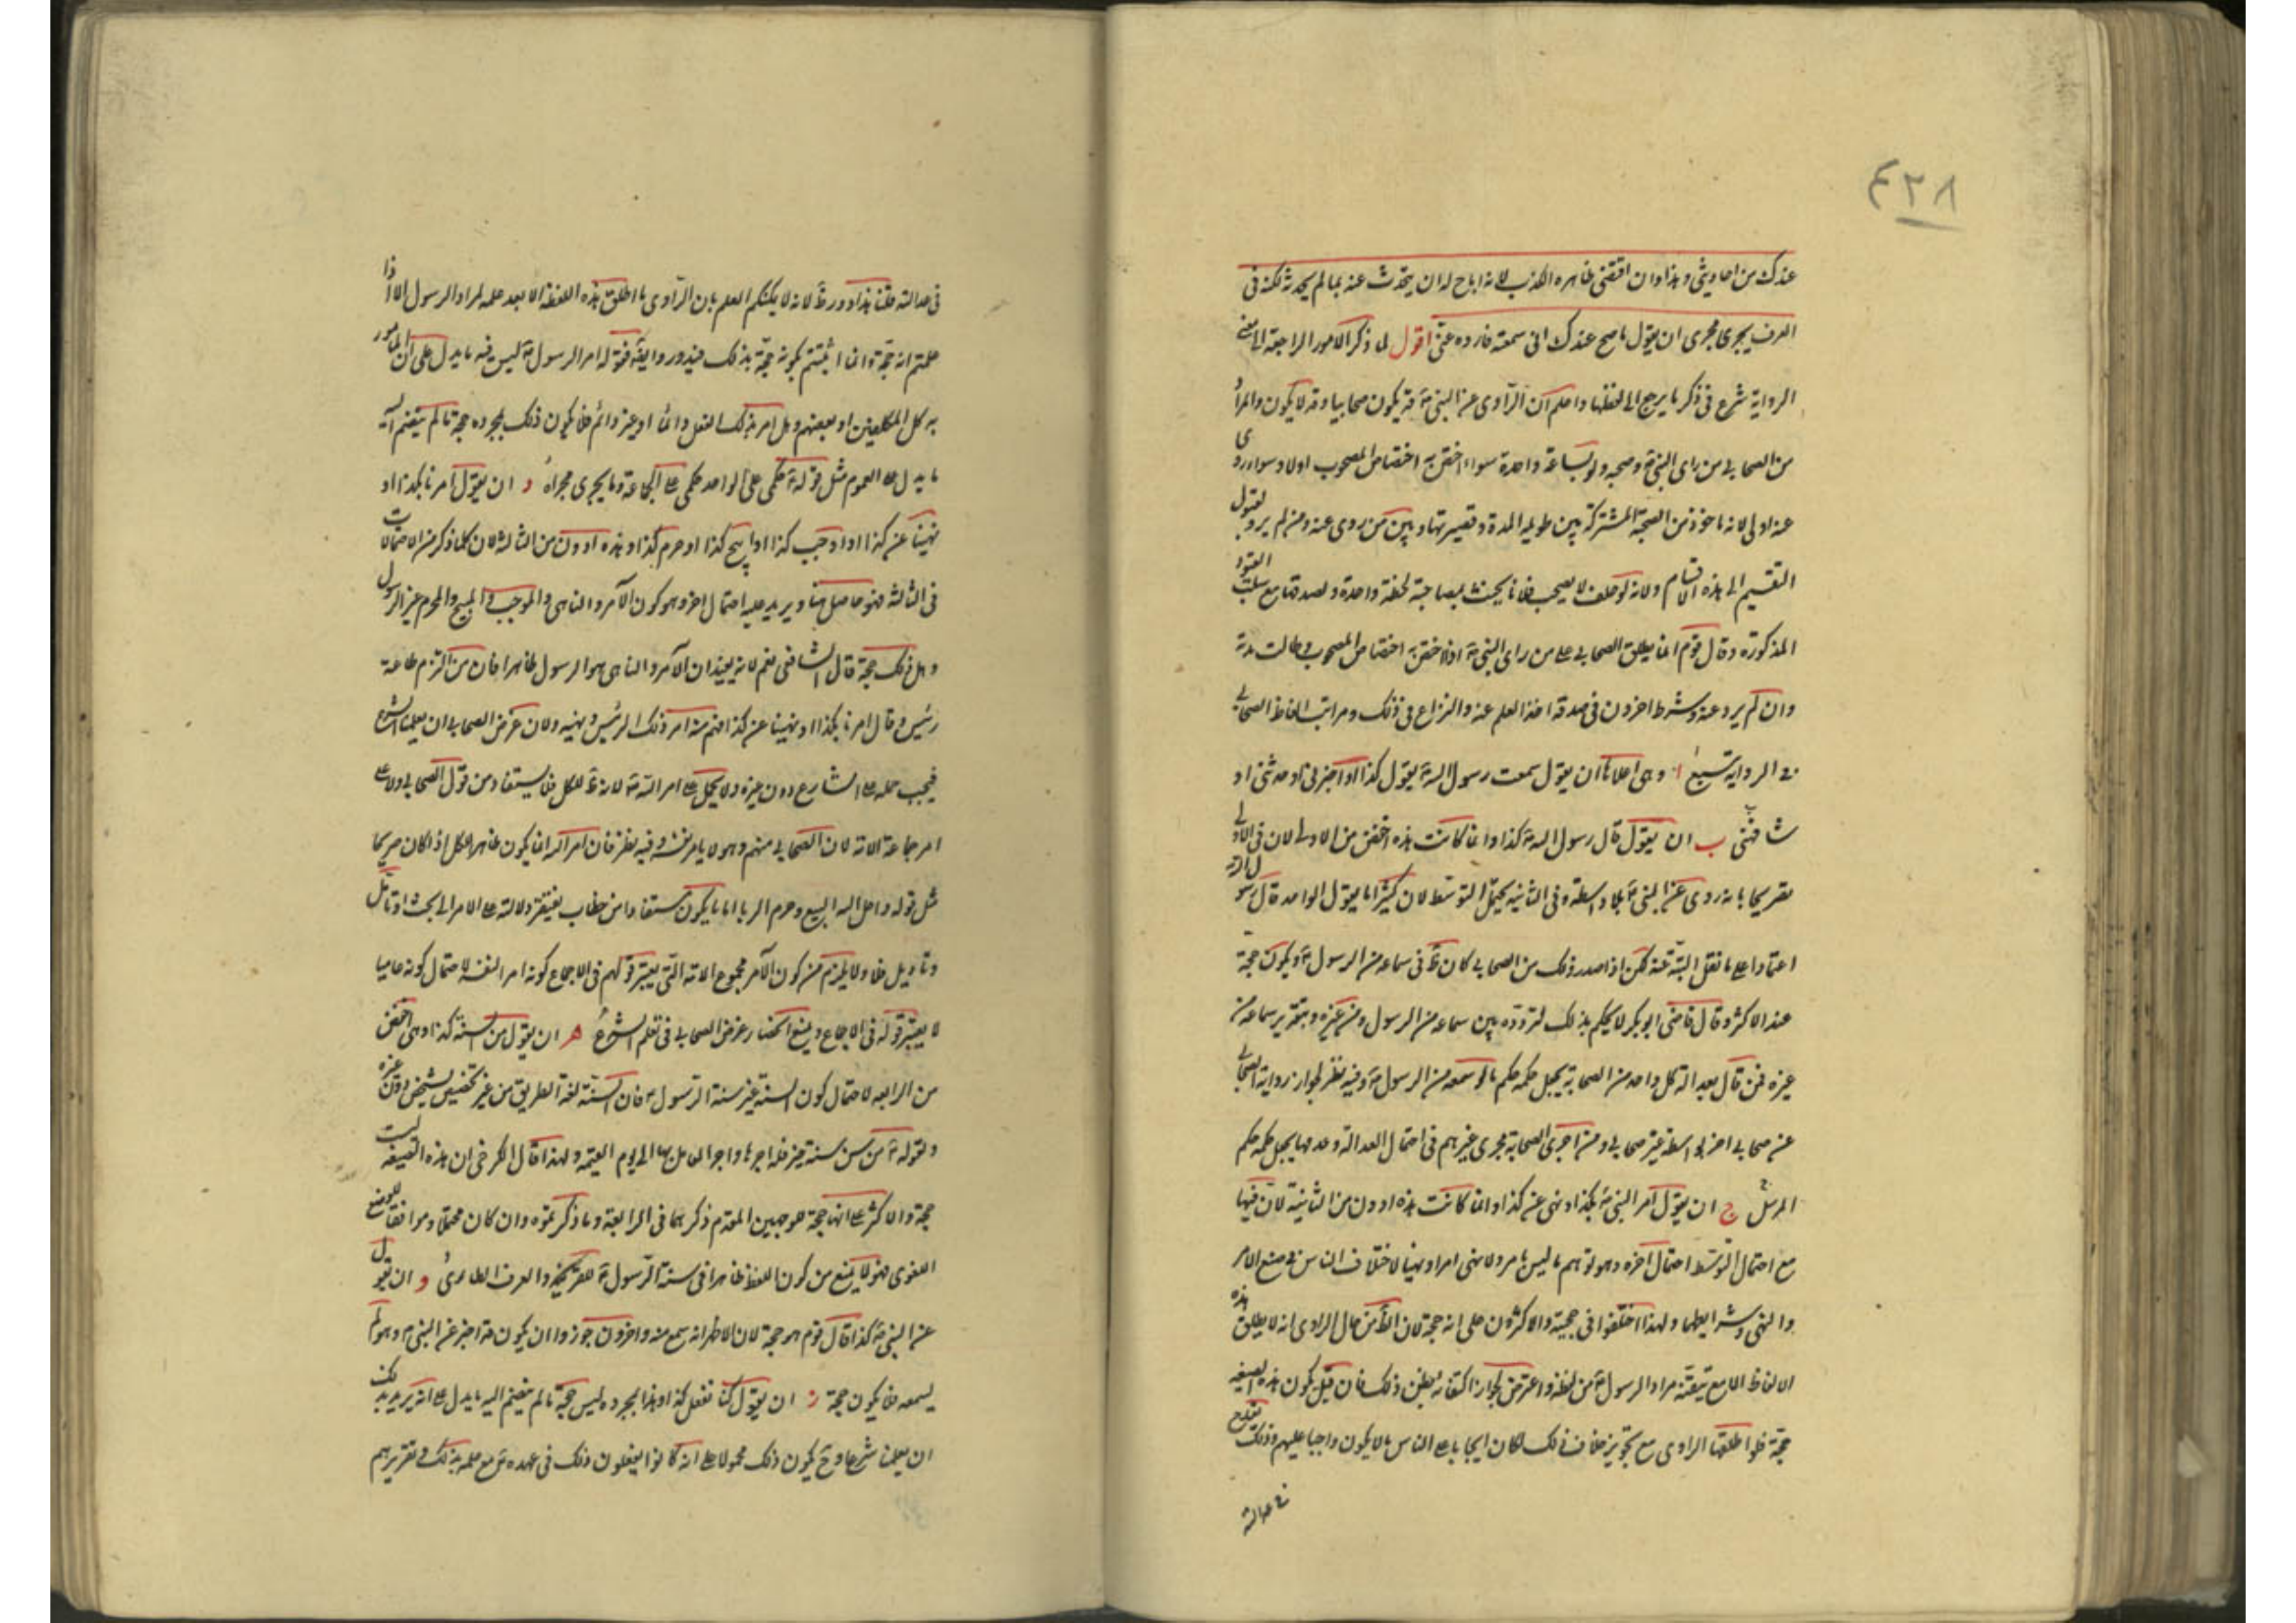 ٤٢٨
عندك من احاديثي وهذا وان اقتضى ظاهره الكذب لانه اباح له ان يتحدث عنه بما لم يحدثه لكنه في
العرف يجري مجرى ان يقول ما صح عندك اني سمعته فاروه عني اقول لما ذكر الامور الراجعة الى معنى
الرواية شرع في ذكر ما يرجع الى لفظها واعلم ان الراوي عن النبي ص قد يكون صحابيا وقد لا يكون والمراد
من الصحابي من راى النبي ص وصحبه ولو ساعة واحدة سواء اختص به اختصاص المصحوب اولا وسواء روى
عنه اولى لانه ماخوذ من الصحبة المشتركة بين طويلة المدة وقصيرتها وبين من روى عنه ومن لم يرو لقبول
التقسيم الى هذه الاقسام ولانه لو حلف لا يصحب فلانا يحنث بمصاحبته لحظة واحدة ولصدقها مع سلب القيود
المذكورة وقال قوم انما يطلق الصحابي على من راى النبي ص اذا اختص به اختصاص المصحوب وطالت مدته
وان لم يرو عنه وشرط اخرون في صدقه اخذ العلم عنه والنزاع في ذلك ومراتب الفاظ الصحابي
في الرواية سبع ا وهي اعلاها ان يقول سمعت رسول الله ص يقول كذا او اخبرني او حدثني او
شافهني ب ان يقول قال رسول الله ص كذا وانما كانت هذه اخفض من الاولى لان في الاولى
تصريحا بانه روى عن النبي ص بلا واسطة وفي الثانية يحتمل التوسط لان كثيرا ما يقول الواحد قال رسول الله
اعتمادا على ما نقل اليه عنه لكن اذا صدر ذلك من الصحابي كان ظ في سماعه من الرسول ص ويكون حجة
عند الاكثر وقال قاضي ابو بكر لا يحكم بذلك لتردده بين سماعه من الرسول ومن غيره وبتقدير سماعه من
غيره فمن قال بعدالة كل واحد من الصحابة يجعل حكمه حكم ما لو سمعه من الرسول ص وفيه نظر لجواز رواية الصحابي
عن صحابي اخر بواسطة غير صحابي ومن اجرى الصحابة مجرى غيرهم في احتمال العدالة وعدمها يجعل حكمه حكم
المرسل ج ان يقول امر النبي ص بكذا او نهى عن كذا وانما كانت هذه ادون من الثانية لان فيها
مع احتمال التوسط احتمال اخر وهو توهم ما ليس بامر ولا نهي امرا ونهيا لاختلاف الناس في صيغ الامر
والنهي وشرايطها ولهذا اختلفوا في حجيته والاكثرون على انه حجة لان الظ من حال الراوي انه لا يطلق هذه
الالفاظ الا مع تيقنه مراد الرسول ص من لفظه واعترض بجواز اكتفائه بظن ذلك فان قيل كون هذه الصيغة
حجة فلو اطلقها الراوي مع تجويز خلاف ذلك لكان ايجابا على الناس ما لا يكون واجبا عليهم وذلك يقدح
في عدالته
في عدالته قلنا هذا دور ظ لانه لا يمكنكم العلم بان الراوي ما اطلق هذه اللفظة الا بعد علمه لمراد الرسول الا اذا
علمتم انه حجة وانما اثبتم كونه حجة بذلك فيدور وايضا فقوله امر الرسول ص ليس فيه ما يدل على ان المامور
به كل المكلفين او بعضهم وهل امر بذلك الفعل دائما او غير دائم فلا يكون ذلك بمجرده حجة ما لم ينضم اليه
ما يدل على العموم مثل قوله ص حكمي على الواحد حكمي على الجماعة وما يجري مجراه د ان يقول امرنا بكذا او
نهينا عن كذا او اوجب كذا او ابيح كذا او حرم كذا وهذه ادون من الثالثة لان كلما ذكر من الاحتمالات
في الثالثة فهو حاصل هنا ويزيد عليه احتمال اخر وهو كون الآمر والناهي والموجب والمبيح والمحرم غير الرسول
وهل ذلك حجة قال الشافعي نعم لانه يفيد ان الآمر والناهي هو الرسول ظاهرا فان من التزم طاعة
رئيس وقال امرنا بكذا او نهينا عن كذا فهم منه امر ذلك الرئيس ونهيه ولان غرض الصحابي ان يعلمنا الشرع
فيجب حمله على الشارع دون غيره ولا يحمل على امر الله ص لانه ظ للكل فلا يستفاد من قول الصحابي ولا على
امر جماعة الامة لان الصحابي منهم وهو لا يامر نفسه وفيه نظر فان امر الله انما يكون ظاهرا للكل اذا كان صريحا
مثل قوله واحل الله البيع وحرم الربا اما ما يكون مستفادا من خطاب يفتقر دلالته على الامر الى بحث او تامل
وتاويل فلا ولا يلزم من كون الآمر مجموع الامة التي يعتبر قولهم في الاجماع كونه امر النفسه لاحتمال كونه عاميا
لا يعتبر قوله في الاجماع ويمنع انحصار غرض الصحابي في تعلم الشرع ه ان يقول من السنة كذا وهي اخفض
من الرابعة لاحتمال كون السنة غير سنة الرسول ص فان السنة لغة الطريق من غير تخصيص لشخص دون غيره
ولقوله ص من سن سنة خير فله اجرها واجر العامل بها الى يوم القيمة ولهذا قال الكرخي ان هذه الصيغة ليست
حجة والاكثر على انها حجة للوجهين المقدم ذكرهما في الرابعة وما ذكرتموه وان كان محتملا وموافقا للوضع
اللغوي فهو لا يمنع من كون اللفظ ظاهرا في سنة الرسول ص للقرينة والعرف الطاري و ان يقول
عن النبي ص كذا قال قوم هو حجة لان الظاهر انه سمع منه واخرون جوزوا ان يكون قد اخبر عن النبي ص وهو لم
يسمعه فلا يكون حجة ز ان يقول كنا نفعل كذا وهذا بمجرده ليس حجة ما لم ينضم اليه ما يدل على انه يريد بذلك
ان يعلمنا شرعا وح يكون ذلك محمولا على انه كانوا يفعلون ذلك في عهده ص مع علمه بذلك وتقريرهم